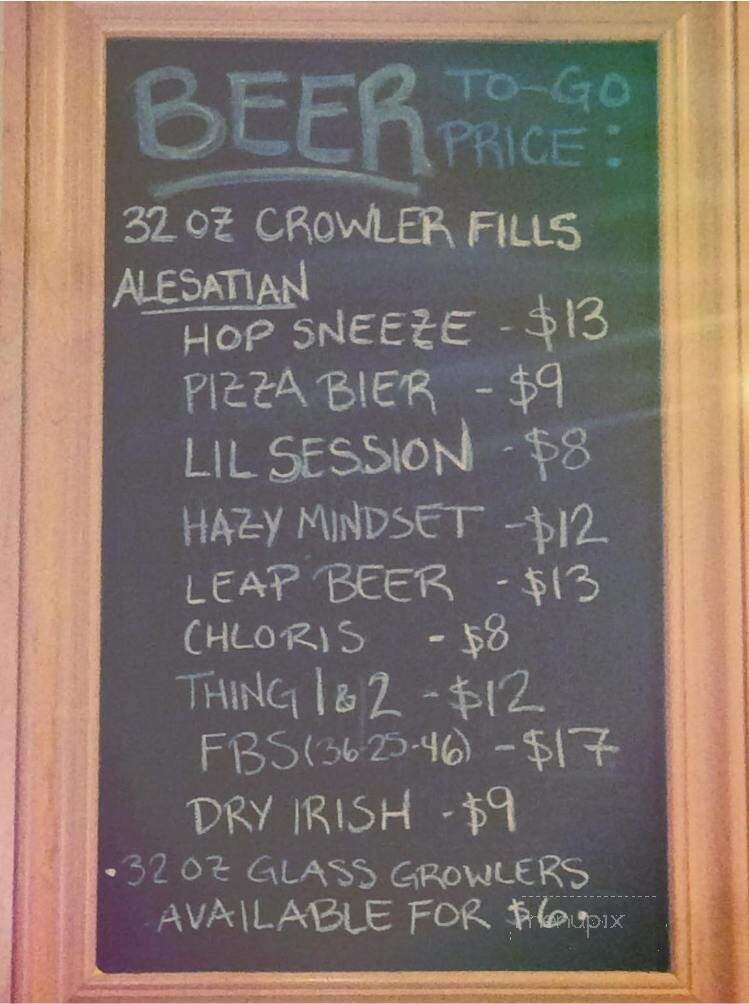 BEER TO-GO
PRICE:
32 OZ CROWLER FILLS
ALESATIAN
HOP SNEEZE - $13
PIZZA BIER - $9
LIL SESSION - $8
HAZY MINDSET - $12
LEAP BEER - $13
CHLORIS - $8
THING 1 & 2 - $12
FBS (36-25-46) - $17
DRY IRISH - $9
• 32 OZ GLASS GROWLERS
AVAILABLE FOR $6.
menupix